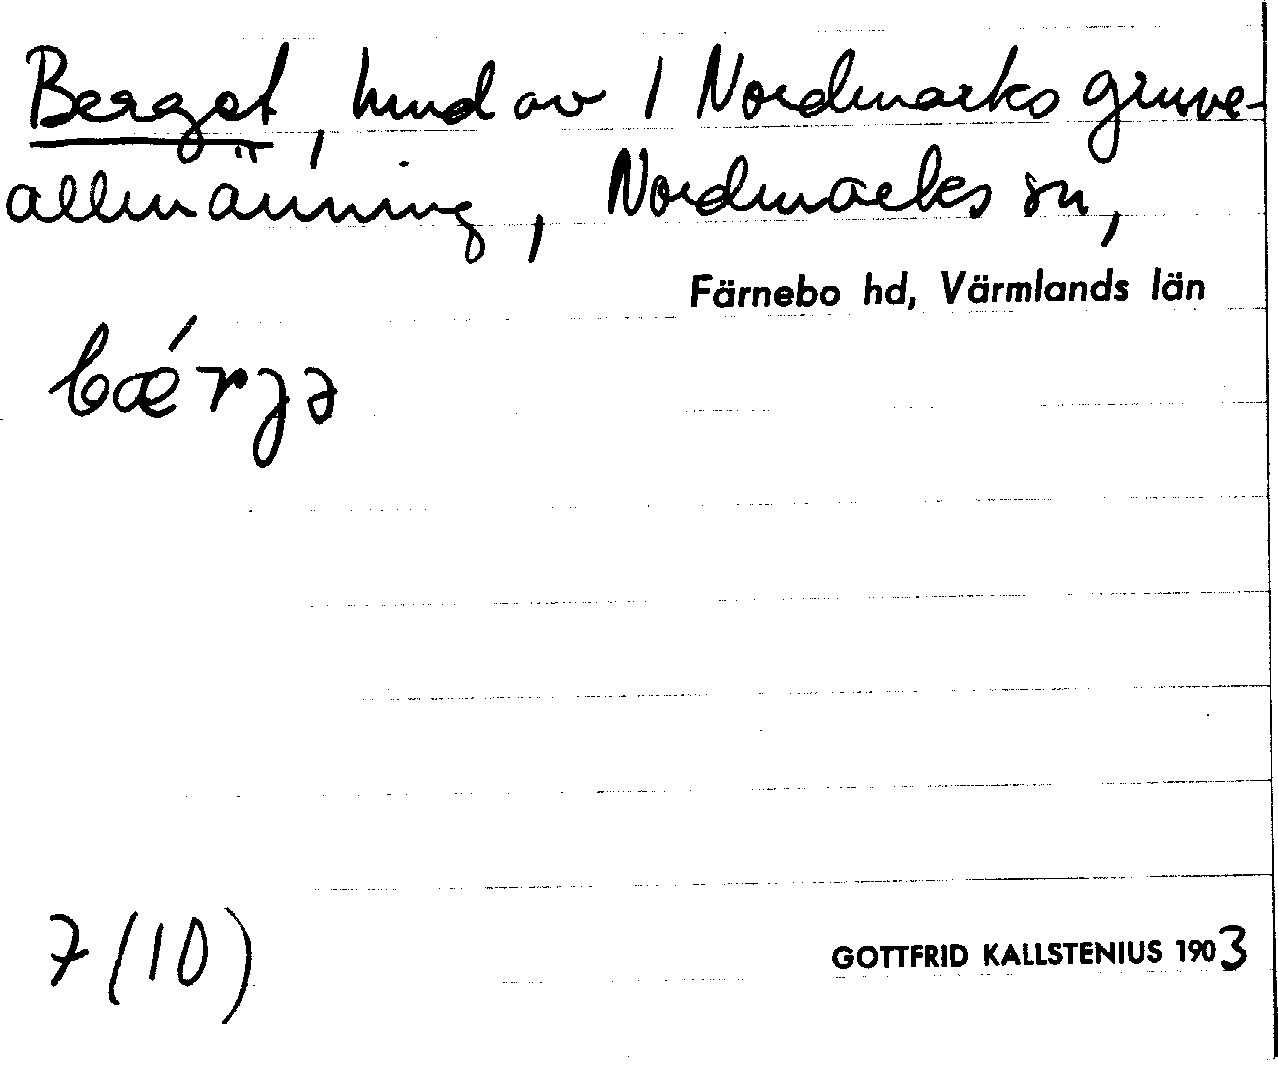 Berget, hmd av 1 Nordmarks gruve-
allmänning, Nordmarks sn,
Färnebo hd, Värmlands län
bǽrjə
7 (10)
GOTTFRID KALLSTENIUS 1903